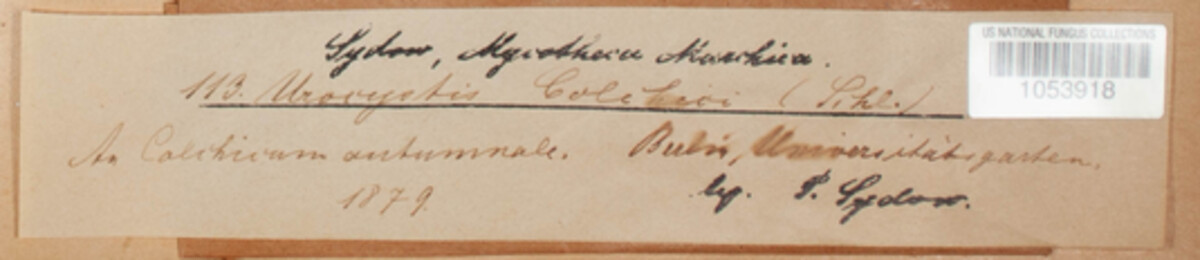 Sydow, Mycotheca Marchica.
113. Urocystis Colchici (Schl.)
An Colchicum autumnale. Berlin, Universitätsgarten.
1879. leg. P. Sydow.
US NATIONAL FUNGUS COLLECTIONS
1053918